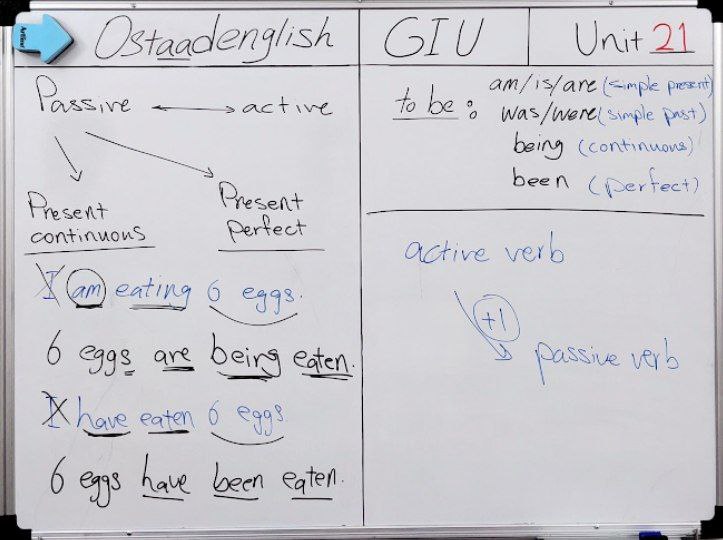 Ostaadenglish
GIU
Unit 21
Passive ⟷ active
Present continuous
Present perfect
I am eating 6 eggs.
6 eggs are being eaten.
I have eaten 6 eggs.
6 eggs have been eaten.
to be : am/is/are (simple present)
was/were (simple past)
being (continuous)
been (perfect)
active verb
+1
passive verb